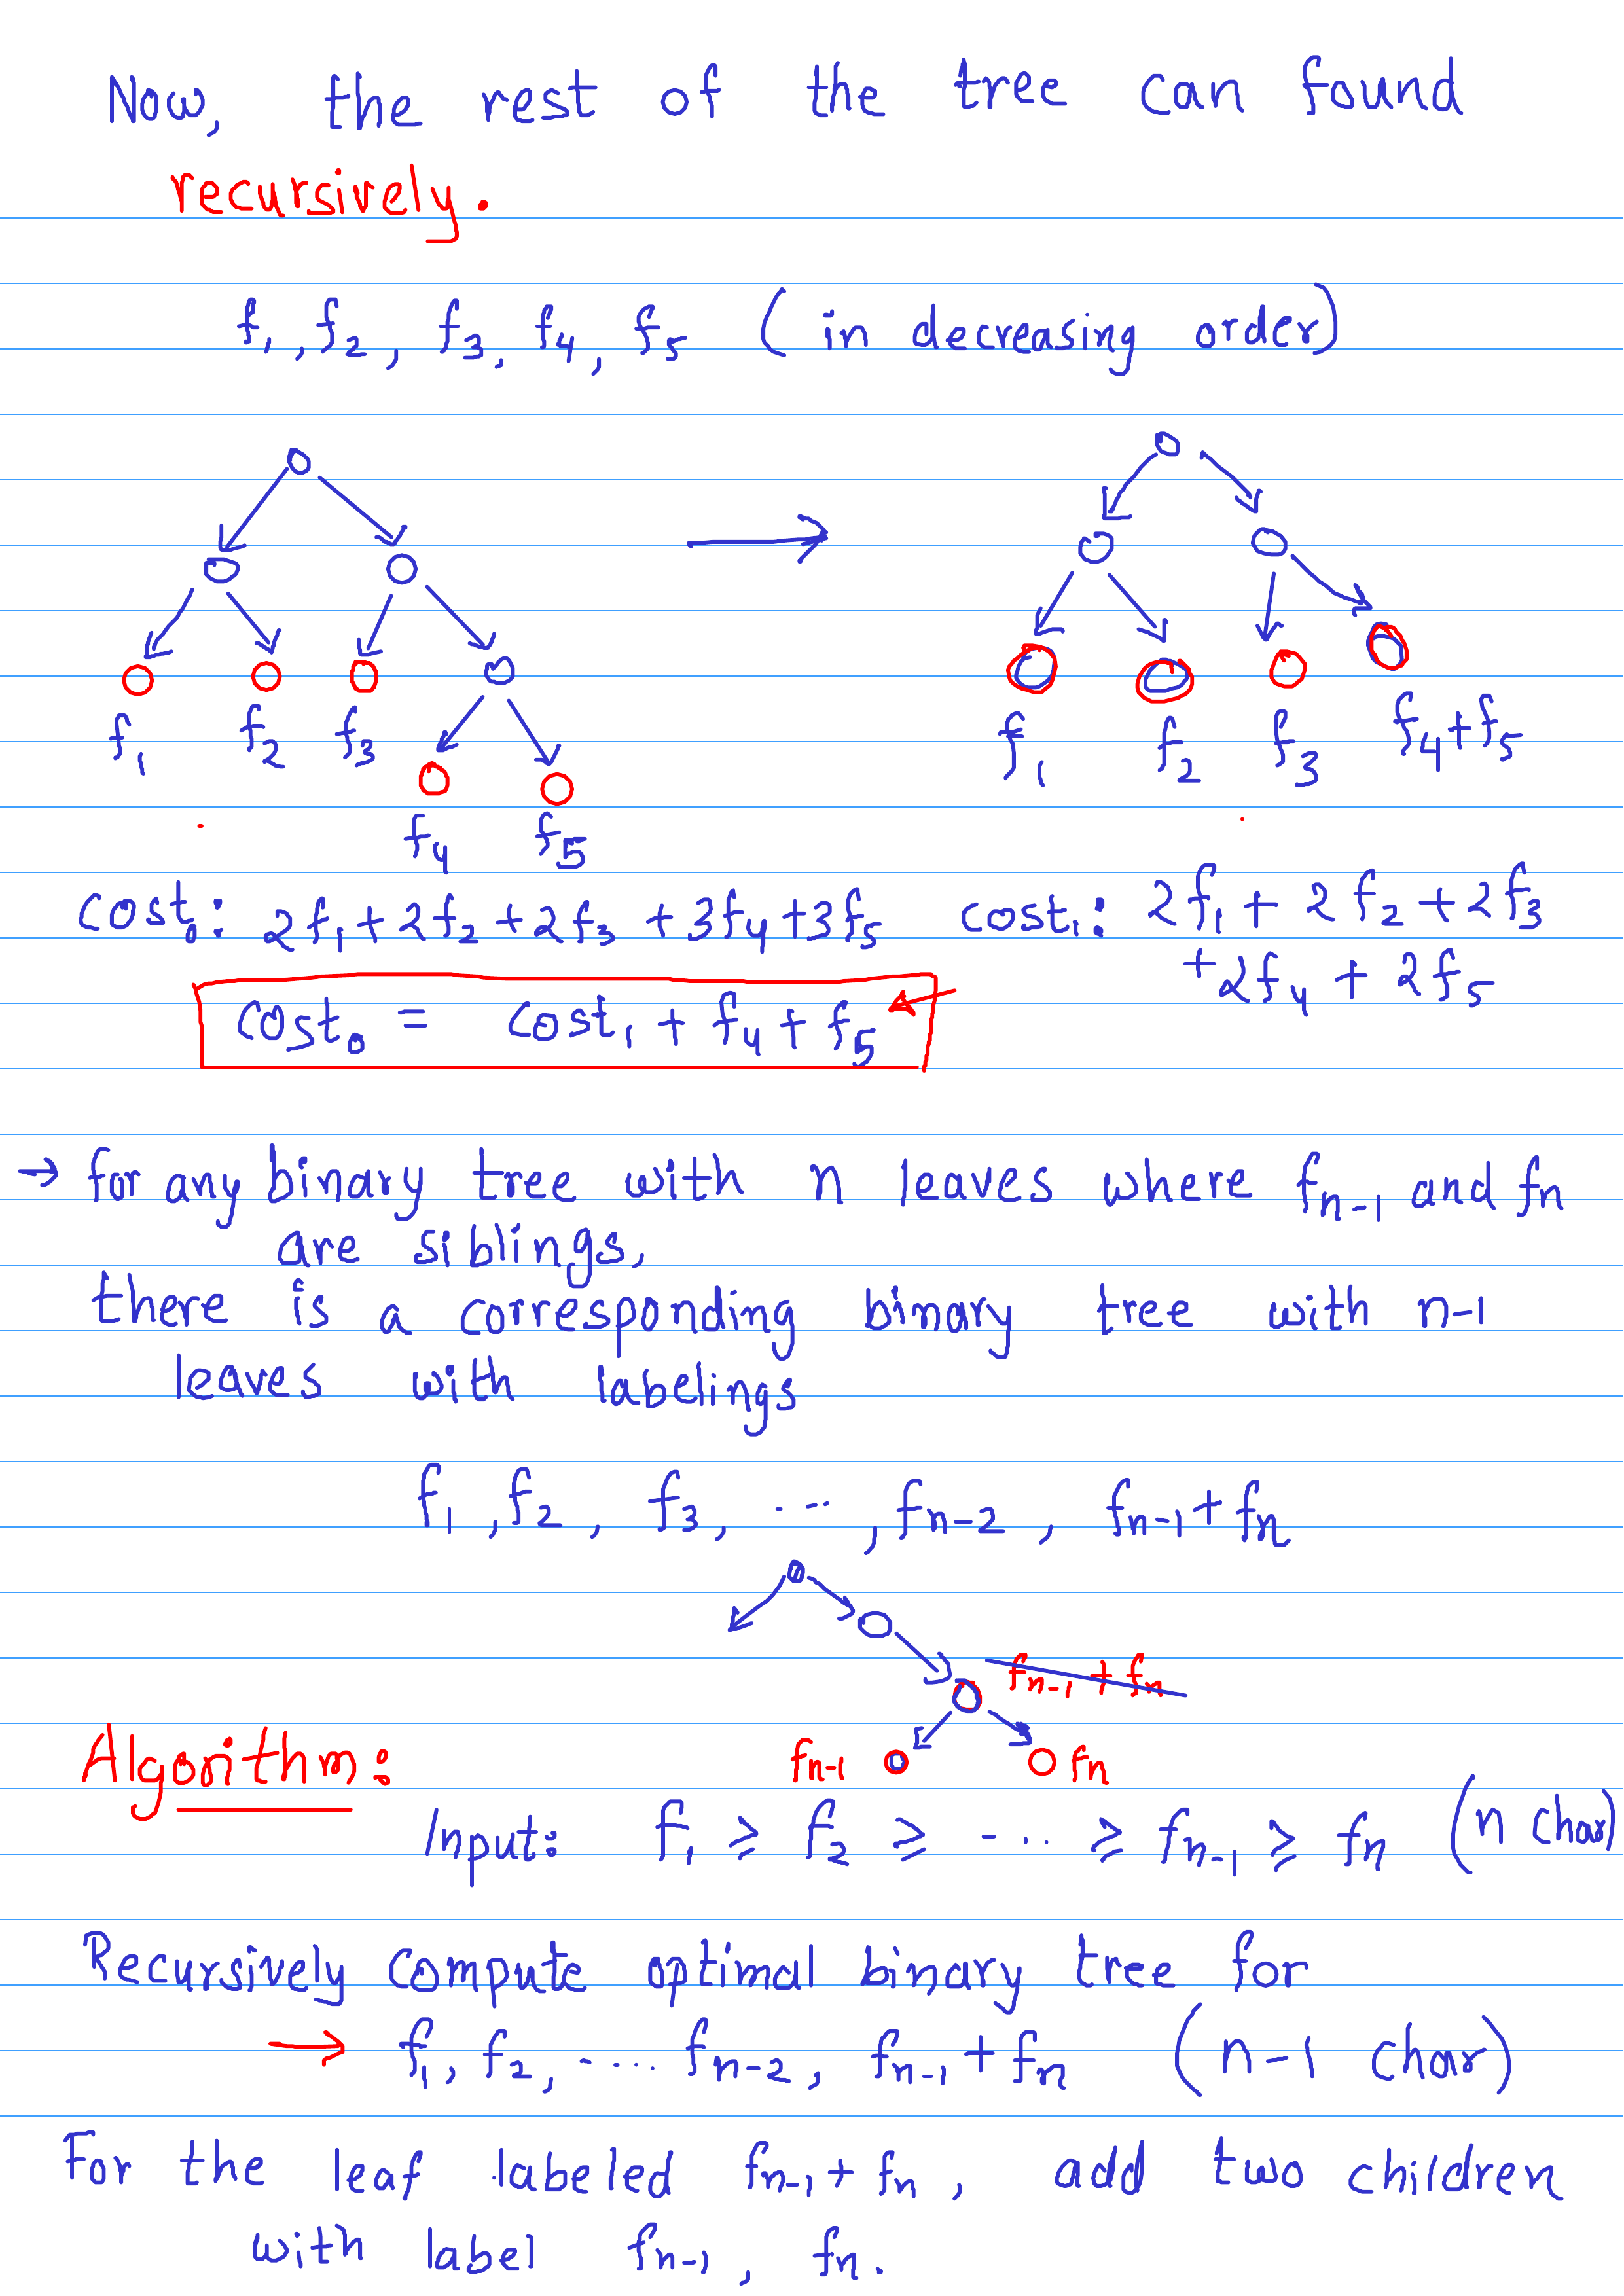 Now, the rest of the tree can found
recursively.
f₁, f₂, f₃, f₄, f₅ (in decreasing order)
f₁ f₂ f₃
f₄ f₅
f₁ f₂ f₃ f₄+f₅
cost₀: 2f₁+2f₂+2f₃+3f₄+3f₅
cost₁: 2f₁+2f₂+2f₃
+2f₄+2f₅
cost₀ = cost₁ + f₄ + f₅
→ for any binary tree with n leaves where fₙ₋₁ and fₙ
are siblings,
there is a corresponding binary tree with n-1
leaves with labelings
f₁, f₂, f₃, ..., fₙ₋₂, fₙ₋₁+fₙ
fₙ₋₁ + fₙ
fₙ₋₁ fₙ
Algorithm:
Input: f₁ ⩾ f₂ ⩾ -... ⩾ fₙ₋₁ ⩾ fₙ (n char)
Recursively compute optimal binary tree for
→ f₁, f₂, .... fₙ₋₂, fₙ₋₁+fₙ (n-1 char)
For the leaf labeled fₙ₋₁+fₙ, add two children
with label fₙ₋₁, fₙ.